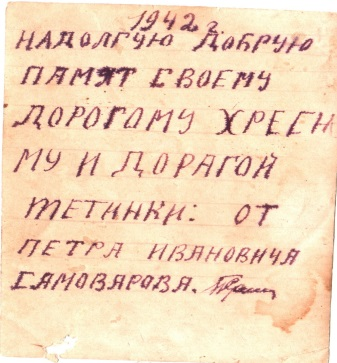 1942 г
НАДОЛГУЮ ДОБРУЮ
ПАМЯТ СВОЕМУ
ДОРОГОМУ ХРЕСН
МУ И ДОРАГОЙ
ТЕТИНКИ: ОТ
ПЕТРА ИВАНОВИЧА
САМОВАРОВА.